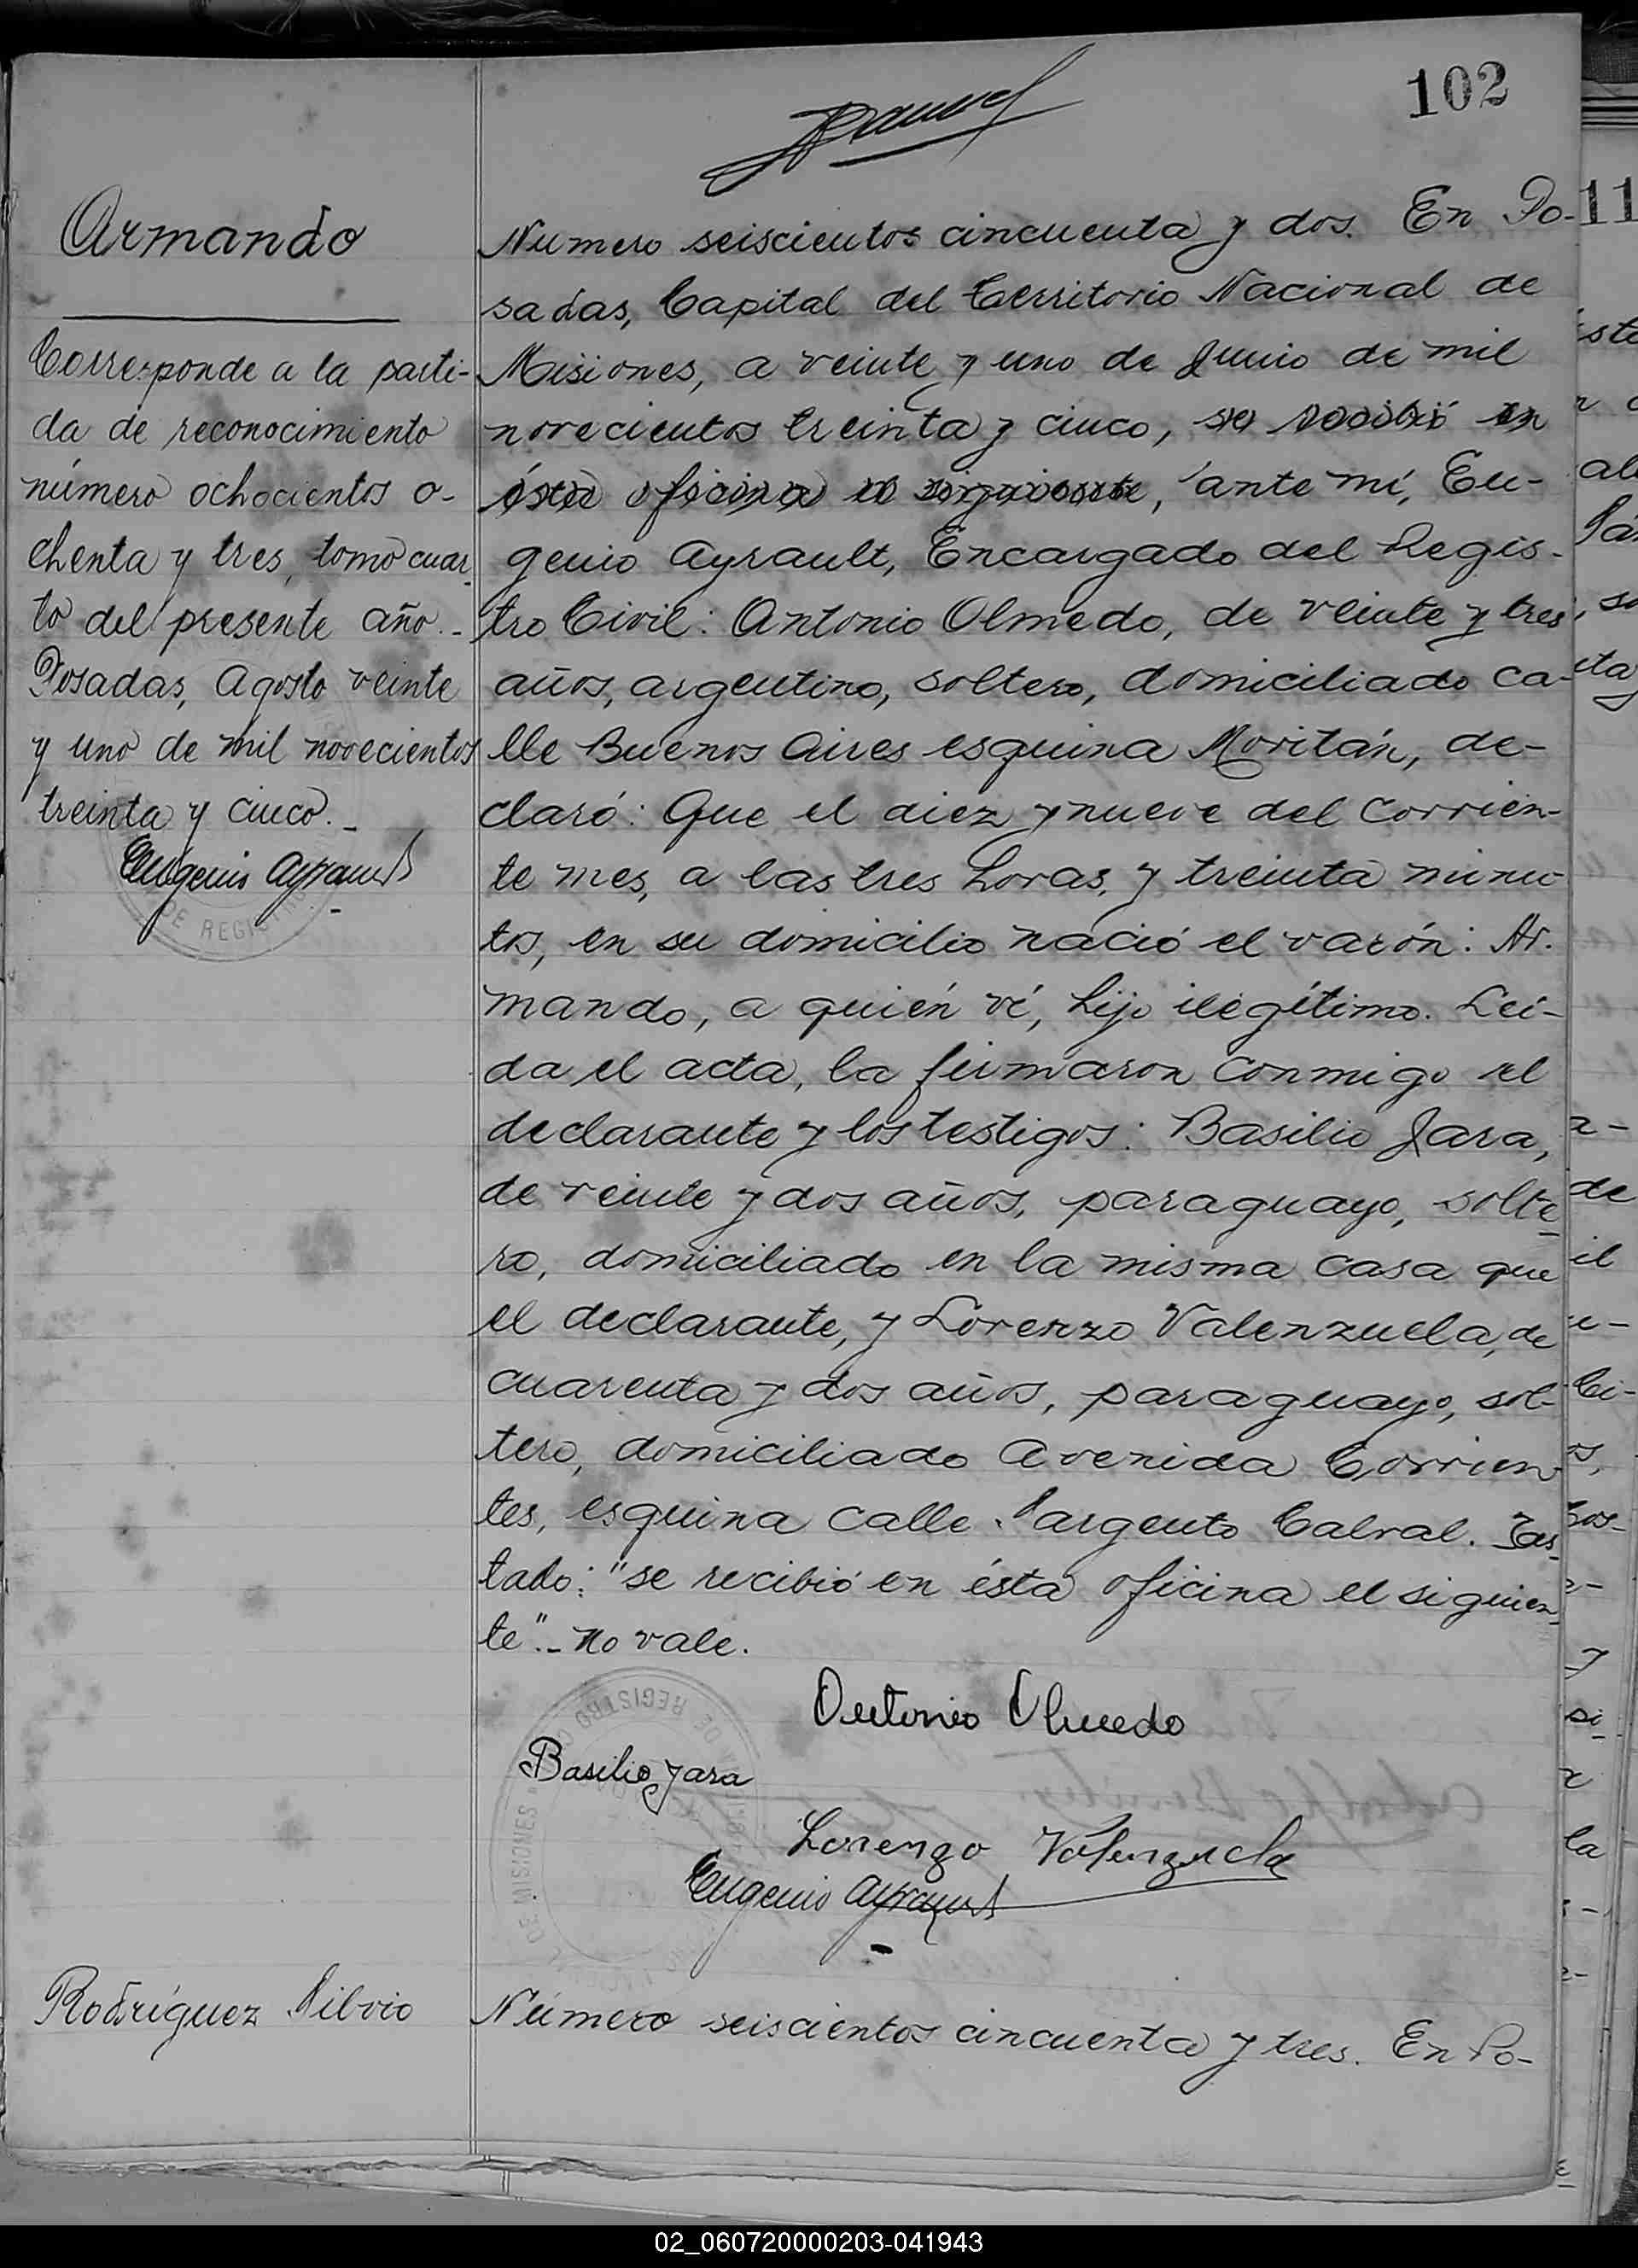 102
Armando
Corresponde a la parti-
da de reconocimiento
número ochocientos o-
chenta y tres, tomo cuar-
to del presente año.-
Posadas, Agosto veinte
y uno de mil novecientos
treinta y cinco.-
Eugenio Ayrault
DE REGIS
Numero seiscientos cincuenta y dos. En Po-
sadas, Capital del Territorio Nacional de
Misiones, a veinte y uno de Junio de mil
novecientos treinta y cinco, se recibió en
ésta oficina el siguiente, ante mí, Eu-
genio Ayrault, Encargado del Regis-
tro Civil: Antonio Olmedo, de veinte y tres
años, argentino, soltero, domiciliado ca-
lle Buenos Aires esquina Moritán, de-
claró: Que el diez y nueve del corrien-
te mes, a las tres horas, y treinta minu-
tos, en su domicilio nació el varón: Ar-
mando, a quién ví, hijo ilegítimo. Leí-
da el acta, la firmaron conmigo el
declarante y los testigos: Basilio Jara,
de veinte y dos años, paraguayo, solte-
ro, domiciliado en la misma casa que
el declarante, y Lorenzo Valenzuela, de
cuarenta y dos años, paraguayo, sol-
tero, domiciliado Avenida Corrien-
tes, esquina calle Sargento Cabral. Tes-
tado: "se recibió en ésta oficina el siguien-
te".- no vale.
Antonio Olmedo
Basilio Jara
Lorenzo Valenzuela
Eugenio Ayrault
DE REGISTRO
DE MISIONES
Rodríguez Silvio
Número seiscientos cincuenta y tres. En Po-
02_060720000203-041943